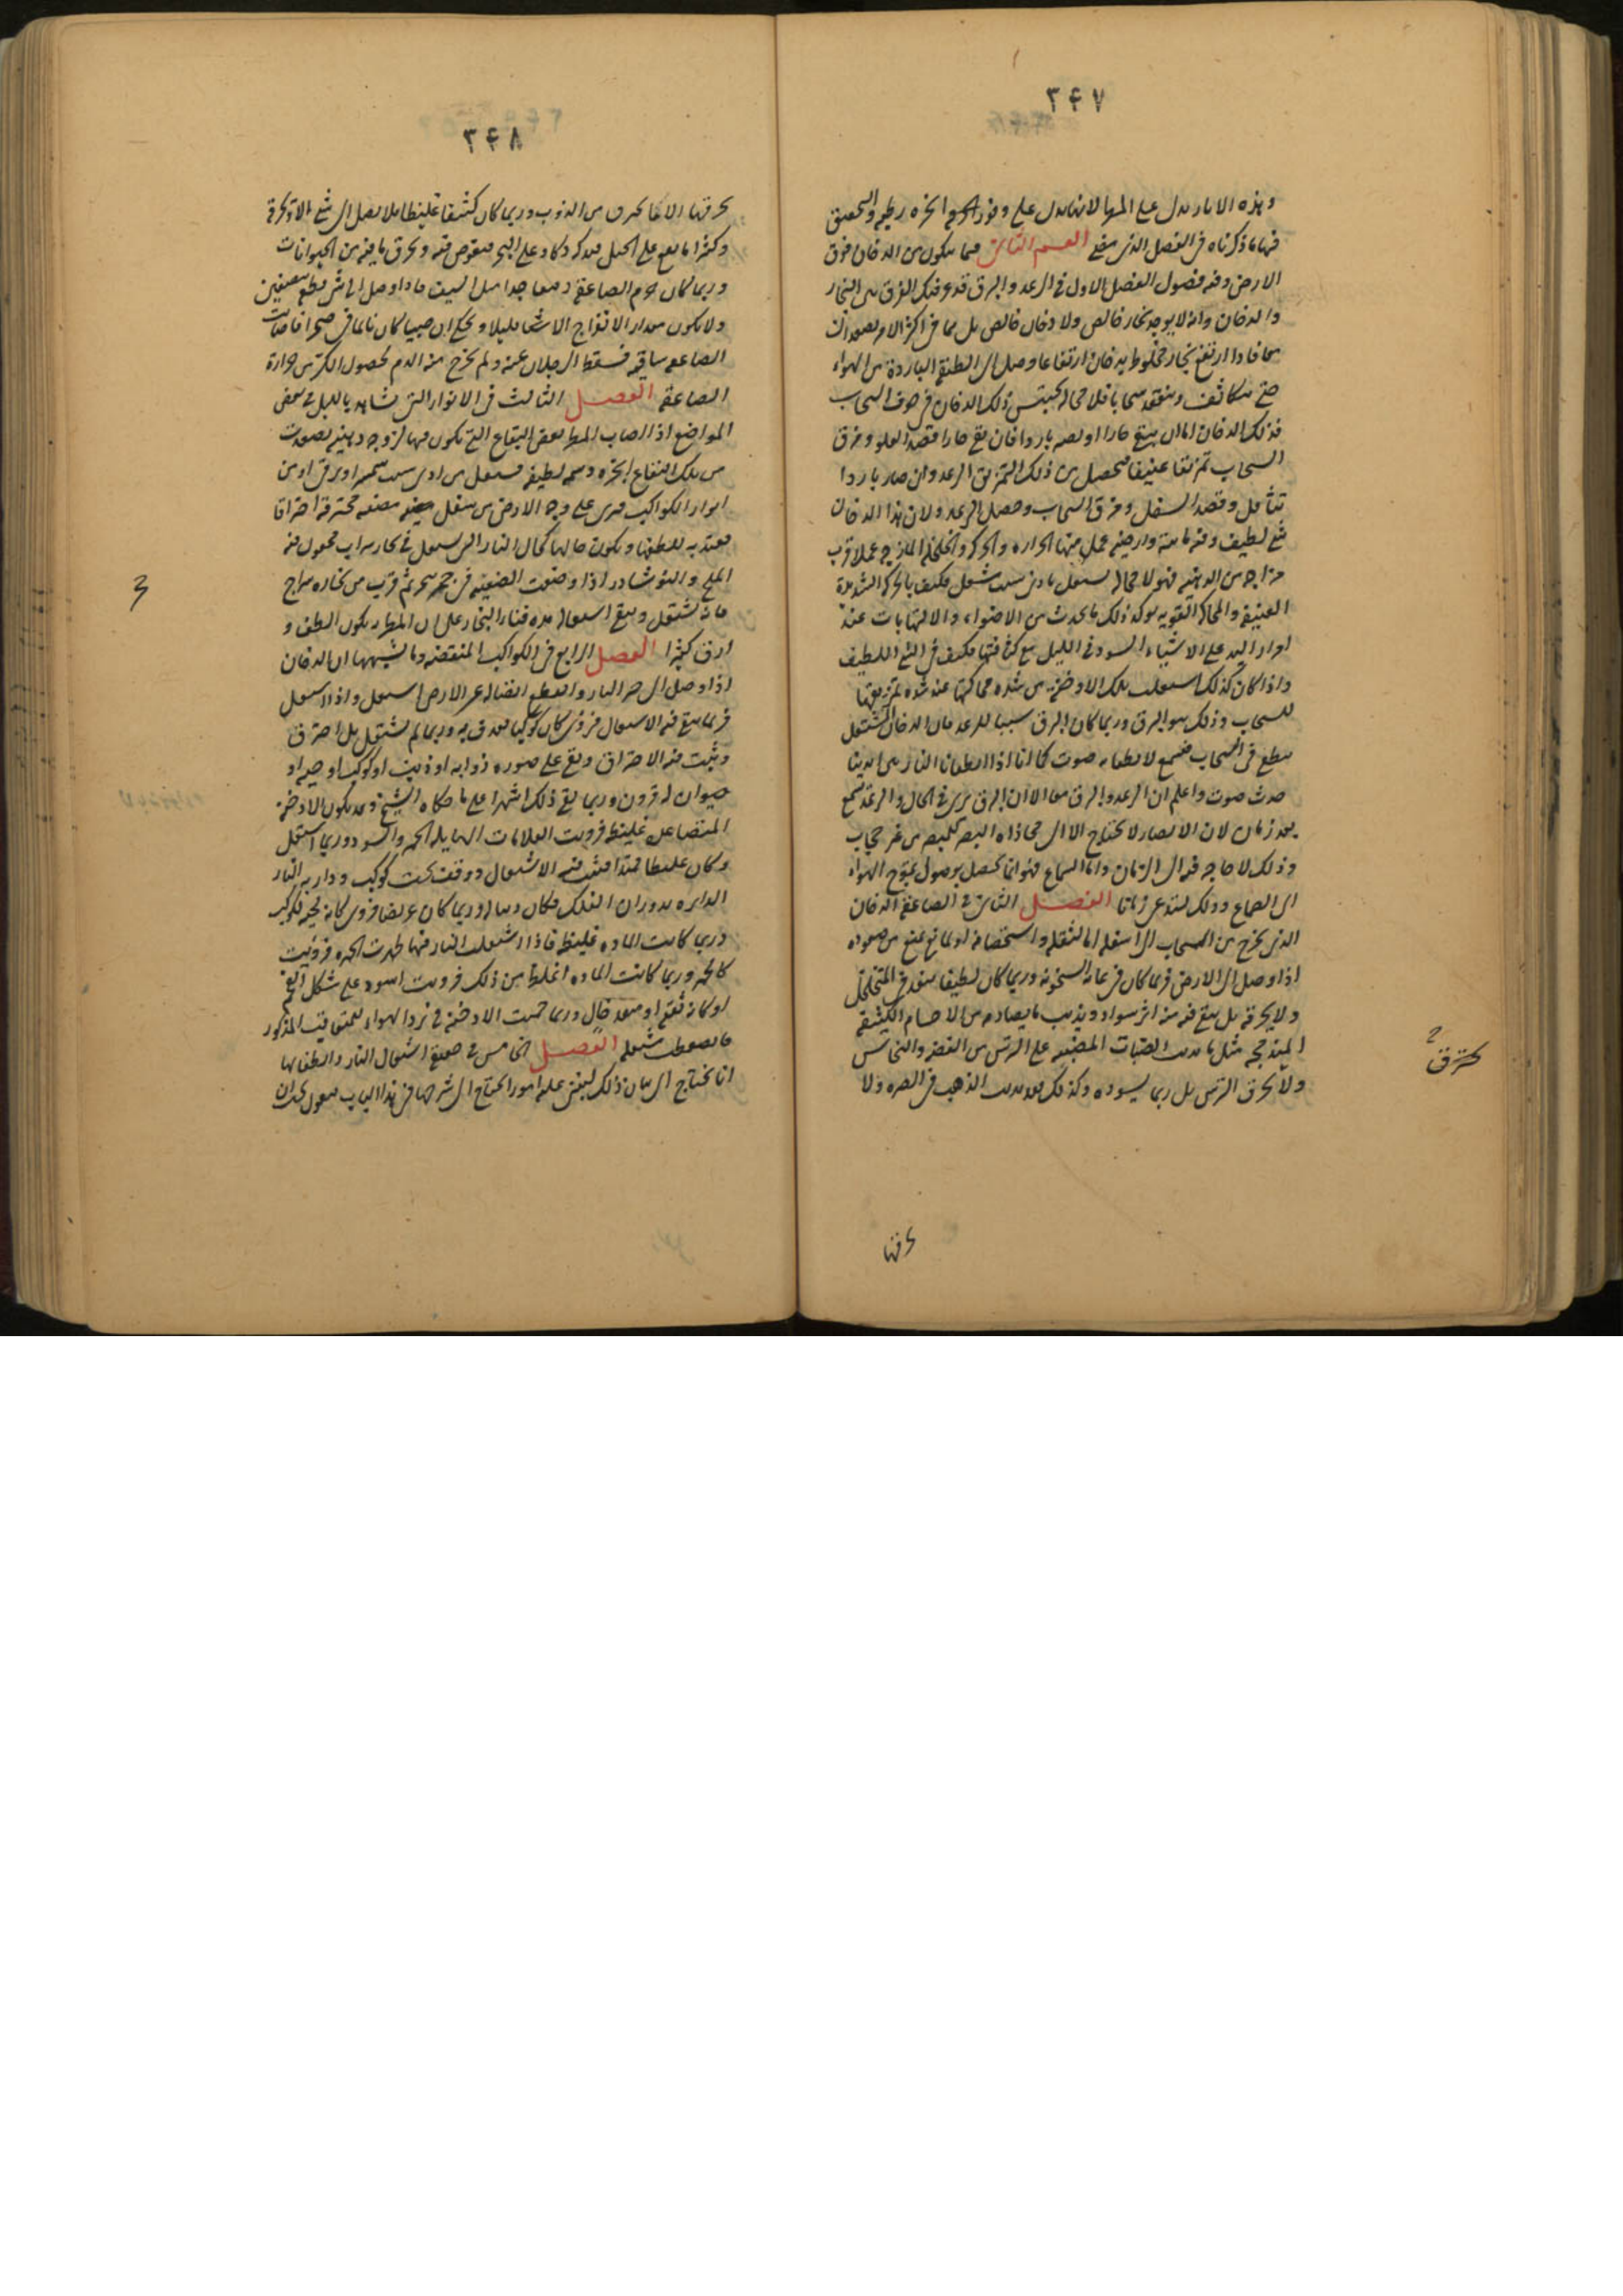 ٣٤٧
وهذه الاثار تدل على المطر لانها تدل على وفور ابخره رطبه والتحقيق
فيها ما ذكرناه فى الفصل الذى مضى القسم الثانى فيما يتكون من الدخان فوق
الارض وفيه فصول الفصل الاول فى الرعد والبرق قد عرفت الفرق بين البخار
والدخان وانه لا يوجد بخار خالص ولا دخان خالص بل هما فى اكثر الامر يصعدان
معا فاذا ارتفع بخار مخلوط بدخان ارتفاعا وصل الى الطبقه الباردة من الهواء
حتى يتكاثف وينعقد سحابا فلا محاله يحتبس ذلك الدخان فى جوف السحاب
فذلك الدخان اما ان يبقى حارا او يصير باردا فان بقى حارا قصد العلو ومزق
السحاب تمزيقا عنيفا فيحصل من ذلك التمزيق الرعد وان صار باردا
تثاقل وقصد السفل ومزق السحاب وحصل الرعد ولان هذا الدخان
شئ لطيف وفيه مائيه وارضيه عمل فيها الحراره والحركه والخلخله المازجه عملا قرب
مزاجه من الدهنيه فهو لا محاله يشتعل بادنى سبب مشعل فكيف بالحركه الشديدة
العنيفه والمحاكه القويه يوكد ذلك ما يحدث من الاضواء والالتهابات عند
امرار اليد على الاشياء السود فى الليل مع كثافتها فكيف فى الشئ اللطيف
واذا كان كذلك اشتعلت تلك الادخنة من شده محاكتها عند شده تمزيقها
للسحاب وذلك هو البرق وربما كان البرق سببا للرعد فان الدخان المشتعل
ينطفى فى السحاب فيسمع لانطفائه صوت كما انا اذا اطفانا النار بين ايدينا
حدث صوت واعلم ان الرعد والبرق معا الا ان البرق يرى فى الحال والرعد يسمع
بعد زمان لان الابصار لا يحتاج الا الى محاذاه البصر للمبصر من غير حجاب
وذلك لا حاجه فيه الى الزمان واما السماع فهو انما يحصل بوصول تموج الهواء
الى الصماخ وذلك يستدعى زمانا الفصل الثانى فى الصاعقة الدخان
الذى يخرج من السحاب الى اسفل اما لثقله واستحصافه او لمانع يمنع من صعوده
اذا وصل الى الارض فربما كان فى غايه السخونه وربما كان لطيفا ينفذ فى المتخلخل
ولا يحرقه بل يبقى فيه منه اثر سواد ويذيب ما يصادم من الاجسام الكثيفه
المندمجه مثل ما يذيب الضبات المضببه على الترس من الفضه والنحاس
ولا يحرق الترس بل ربما يسوده وكذلك قد يذيب الذهب فى الصره ولا
يحترق
حرقها
٣٤٨
يحرقها الا ما يحرق من الذوب وربما كان كثيفا غليظا فلا يصل الى شئ الا احرقه
وكثيرا ما يقع على الجبل فيدكه دكا وعلى البحر فيغوص فيه ويحرق ما فيه من الحيوانات
وربما كان جرم الصاعقة دقيقا جدا مثل السيف فاذا وصل الى شئ قطع بنصفين
ولا يكون مقدار الانفراج الا شيئا قليلا ويحكى ان صبيا كان نائما فى صحرا فاصابت
الصاعقه ساقيه فسقط الرجلان عنه ولم يخرج منه الدم لحصول الكى من حرارة
الصاعقة الفصل الثالث فى الانوار التى تشاهد بالليل فى بعض
المواضع اذا اصاب المطر بعض البقاع التى تكون فيها لزوجه دهنيه تصعدت
من تلك البقاع ابخره دسمه لطيفه فتشتعل من ادنى سبب شمس او برق او من
انوار الكواكب فترى على وجه الارض من شعل مضيئه غير محترقه احتراقا
يعتد به للطفها ويكون حالها كحال النار التى تشتعل فى بخار شراب مجعول فيه
الملح والنوشادر اذا وضعت الصنعيه فى جمر ثم قرب من بخاره سراج
فانه يشتعل ويبقى اشتعاله مده فناء البخار على ان المطر يكون الطف و
ارق كثيرا الفصل الرابع فى الكواكب المنقضه وما يشبهها ان الدخان
اذا وصل الى حيز النار وانقطع اتصاله عن الارض اشتعل واذا اشتعل
فربما بقى فيه الاشتعال فرؤى كان كوكبا يقذف به وربما لم يشتعل بل احترق
وثبت فيه الاحتراق وبقى على صوره ذوابه او ذنب او كوكب او حيه او
حيوان له قرون وربما بقى ذلك اشهرا على ما حكاه الشيخ وقد يكون الادخنة
المتصاعدة غليظه فرويت العلامات الهايله الحمر والسود وربما اشتعل
وكان غليظا ممتدا فثبت فيه الاشتعال ووقف تحت كوكب ودار به النار
الدائره بدوران الفلك فكان ذنبا له وربما كان عريضا فرؤى كانه لحيه لكوكب
وربما كانت الماده غليظه فاذا اشتعلت النار فيها ظهرت الحمره فرؤيت
كالجمر وربما كانت الماده اغلظ من ذلك فرويت اسود على شكل الفحم
او كانه ثقبه او منفذ خال وربما حميت الادخنه فى برد الهواء للتعاقب المذكور
فانضغطت مشتعله الفصل الخامس فى حقيقة اشتعال النار وانطفائها
انا نحتاج الى بيان ذلك ليبنى عليه امور يحتاج الى شرحها فى هذا الباب فنقول يجب ان